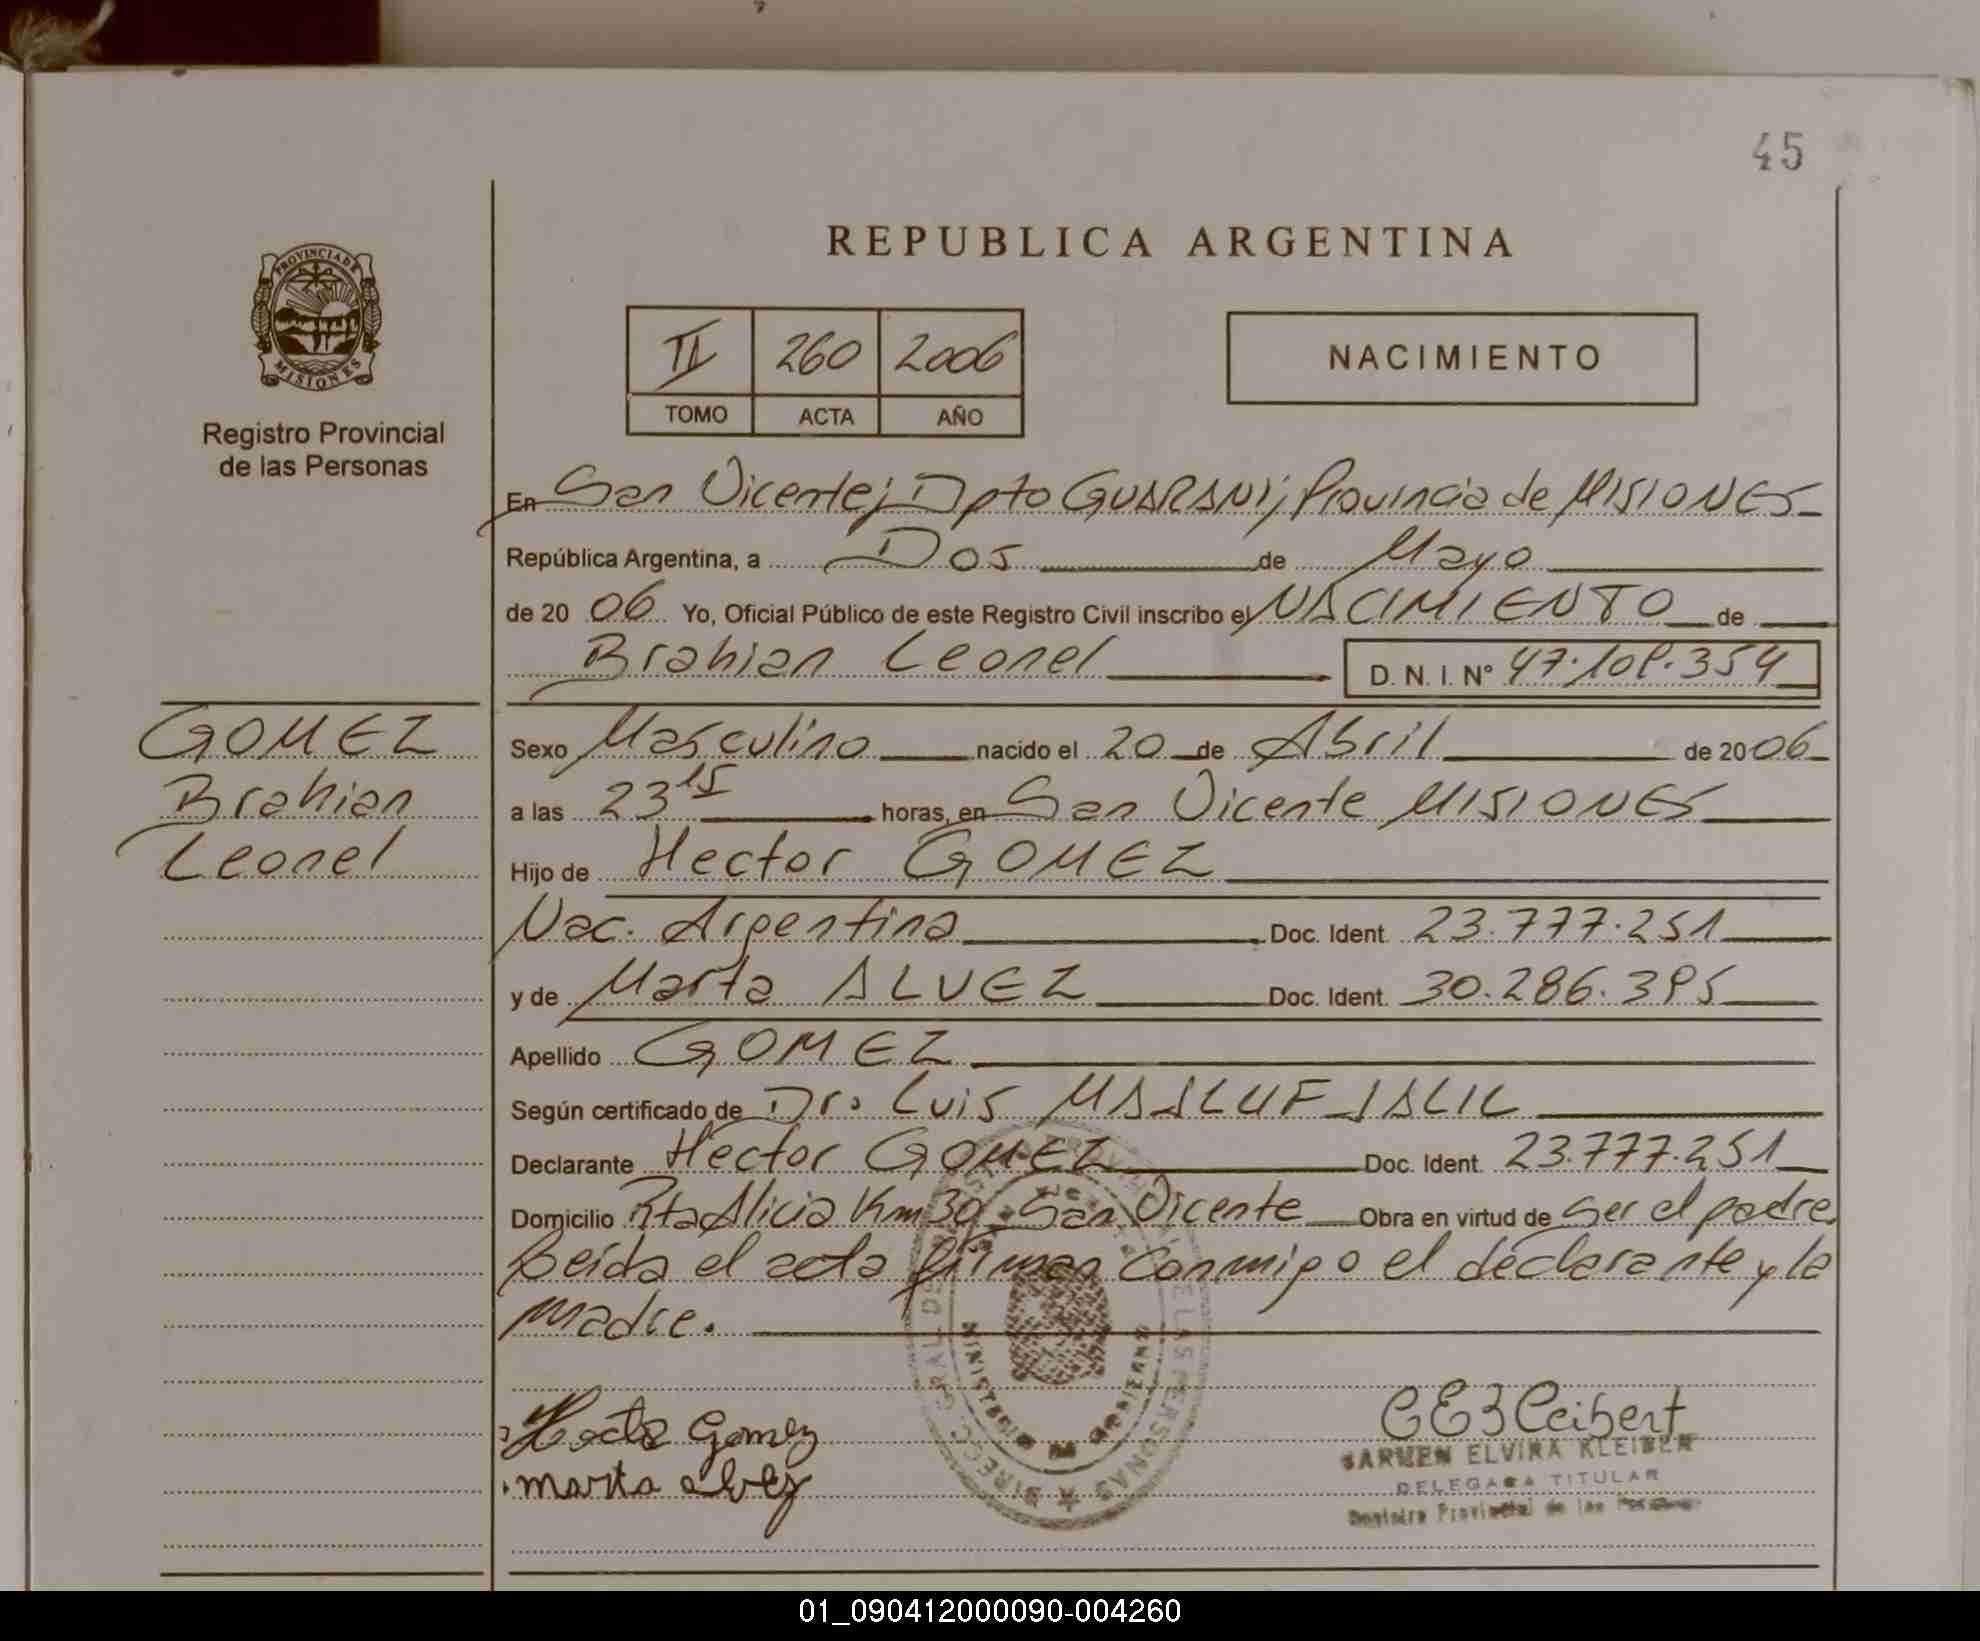 45
REPUBLICA ARGENTINA
PROVINCIA DE
MISIONES
Registro Provincial
de las Personas
II 260 2006
TOMO ACTA AÑO
NACIMIENTO
En San Vicente; Dpto GUARANI; Provincia de MISIONES
República Argentina, a Dos de Mayo
de 20 06 Yo, Oficial Público de este Registro Civil inscribo el NACIMIENTO de
Brahian Leonel D. N. I. Nº 47.108.354
GOMEZ
Brahian
Leonel
Sexo Masculino nacido el 20 de Abril de 20 06
a las 23 15 horas, en San Vicente MISIONES
Hijo de Hector GOMEZ
Nac. Argentina Doc. Ident. 23.777.251
y de Marta ALVEZ Doc. Ident. 30.286.385
Apellido GOMEZ
Según certificado de Dr. Luis MAALUF JALIL
Declarante Hector GOMEZ Doc. Ident. 23.777.251
Domicilio Rta Alicia Km 30 - San Vicente Obra en virtud de Ser el padre.
Leída el acta firman conmigo el declarante y la
madre.
Hector Gomez
marta alvez
CARMEN ELVIRA KLEIBER
DELEGADA TITULAR
Registro Provincial de las Personas
01_090412000090-004260